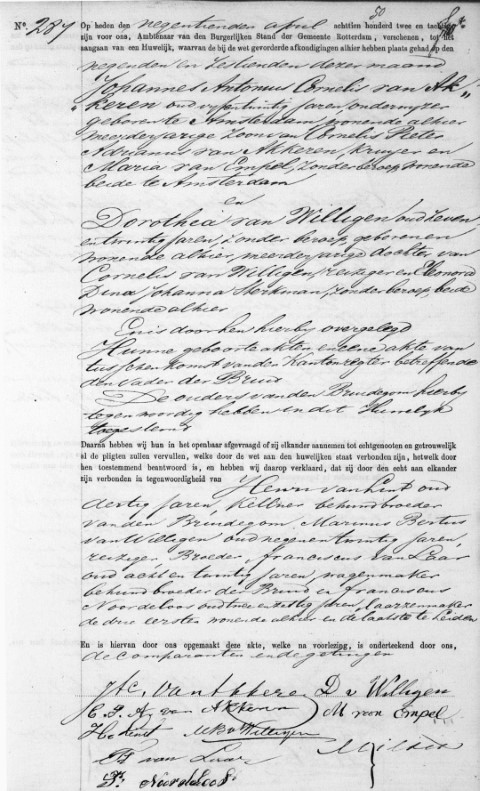 No. 287
50
Op heden den negentienden april achttien honderd twee en tachtig
zijn voor ons, Ambtenaar van den Burgerlijken Stand der Gemeente Rotterdam, verschenen, tot het
aangaan van een Huwelijk, waarvan de bij de wet gevorderde afkondigingen alhier hebben plaats gehad op den
negenden en zestienden dezer maand
Johannes Antonius Cornelis van Ak„
„keren oud vyfentwintig jaren, onderwyzer
geboren te Amsterdam, wonende alhier
meerderjarige zoon van Cornelis Pieter
Adrianus van Akkeren, kruyer en
Maria van Empel, zonder beroep, wonende
beide te Amsterdam
en
Dorothea van Willigen oud zeven
entwintig jaren, zonder beroep, geboren en
wonende alhier, meerderjarige dochter van
Cornelis van Willigen, reiziger en Eleonora
Dina Johanna Sterkman, zonder beroep, beide
wonende alhier
En is door hen hierby overgelegd
Hunne geboorte akten en eene akte van
tusschenkomst van den Kantonregter betreffende
den vader der Bruid
De ouders van den Bruidegom hierby
tegenwoordig hebben in dit Huwelyk
toegestemd
Daarna hebben wij hun in het openbaar afgevraagd of zij elkander aannemen tot echtgenooten en getrouwelijk
al de pligten zullen vervullen, welke door de wet aan den huwelijken staat verbonden zijn, hetwelk door
hen toestemmend beantwoord is, en hebben wij daarop verklaard, dat zij door den echt aan elkander
zijn verbonden in tegenwoordigheid van
Henri van Lint oud
dertig jaren, kellner behuwdbroeder
van den Bruidegom, Marinus Bertus
van Willigen oud negenentwintig jaren,
reiziger, Broeder, franciscus van Laar
oud achtentwintig jaren, wagenmaker
behuwdbroeder der Bruid en franciscus
Noordeloos oud twee en zestig jaren, laarzenmaker
de drie eersten wonende alhier en de laatste te Leiden
En is hiervan door ons opgemaakt deze akte, welke na voorlezing, is onderteekend door ons,
de comparanten en de getuigen
van Akkeren D v Willigen
van Akkeren M van Empel
MB v Willigen
van Laar
Noordeloos